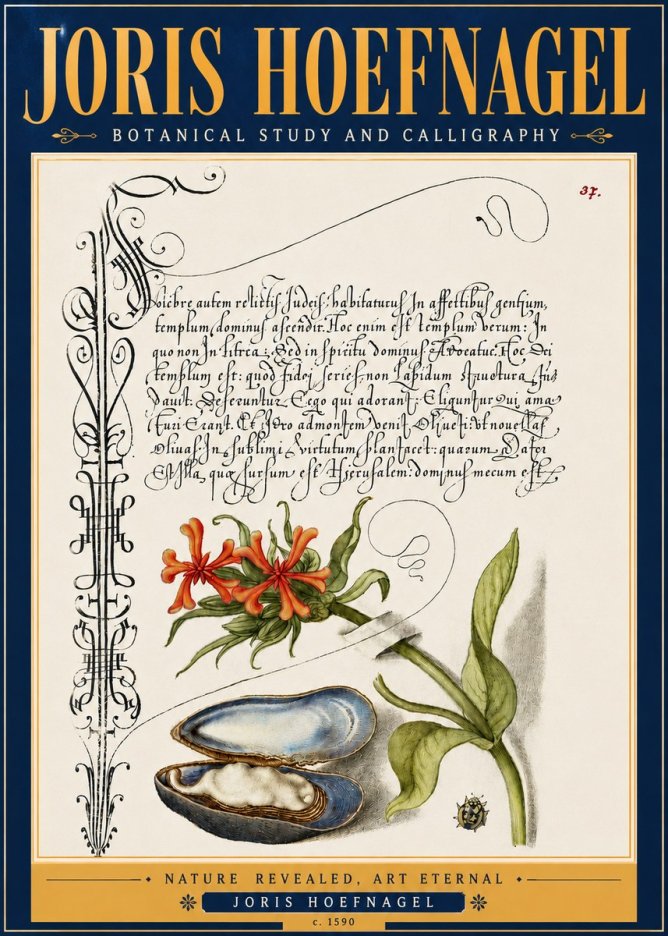 JORIS HOEFNAGEL
BOTANICAL STUDY AND CALLIGRAPHY
37.
autem relictis Judeis: habitaturus In affectibus gentium,
templum dominus Hoc enim est templum verum: In
quo non In litrea: Sed in spiritu dominus Hoc Dei
templum est: quod fidei series non lapidum structura
Deseruntur Ergo qui adorant: Eliguntur qui ama
Erant. Et Ideo ad montem venit Oliueti: vt nouellas
Oliuas In sublimi virtutum
quæ sursum est Hierusalem: dominus mecum est
NATURE REVEALED, ART ETERNAL
JORIS HOEFNAGEL
c. 1590